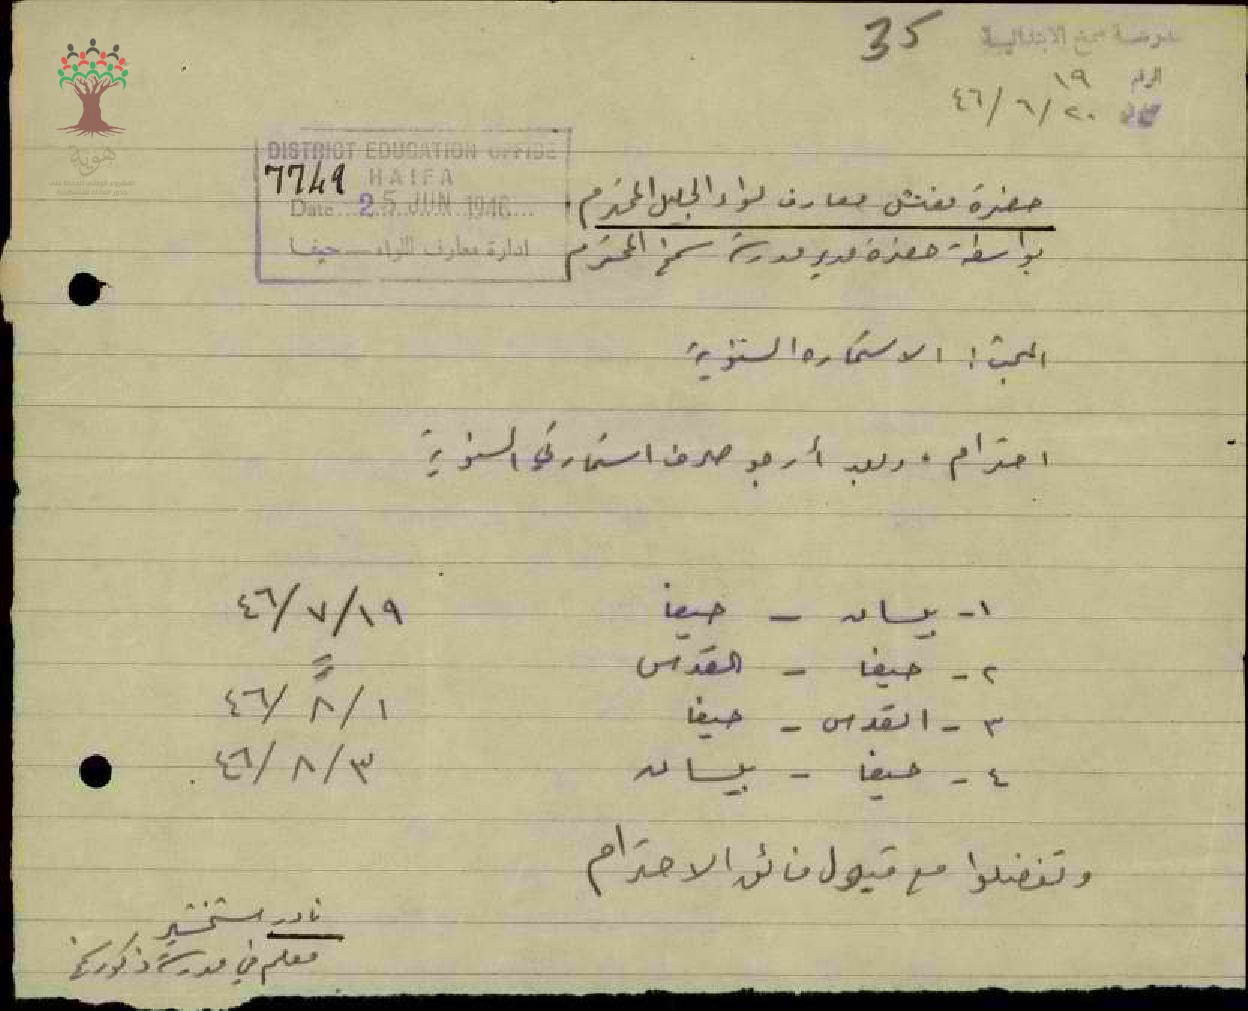 35
مدرسة سمخ الابتدائية
الرقم ١٩
٤٦/٦/٢٠
DISTRICT EDUCATION OFFICE
7749
HAIFA
Date 25 JUN 1946
ادارة معارف اللواء - حيفا
حضرة مفتش معارف لواء الجليل المحترم
بواسطة حضرة مدير مدرسة سمخ المحترم
المبحث: الاستمارة السنوية
احترام، وبعد أرجو صرف استمارتي السنوية
١- بيسان - حيفا ٤٦/٧/١٩
٢- حيفا - القدس =
٣- القدس - حيفا ٤٦/٨/١
٤- حيفا - بيسان ٤٦/٨/٣
وتفضلوا مع قبول فائق الاحترام
نادر
معلم في مدرسة ذكور سمخ
هوية